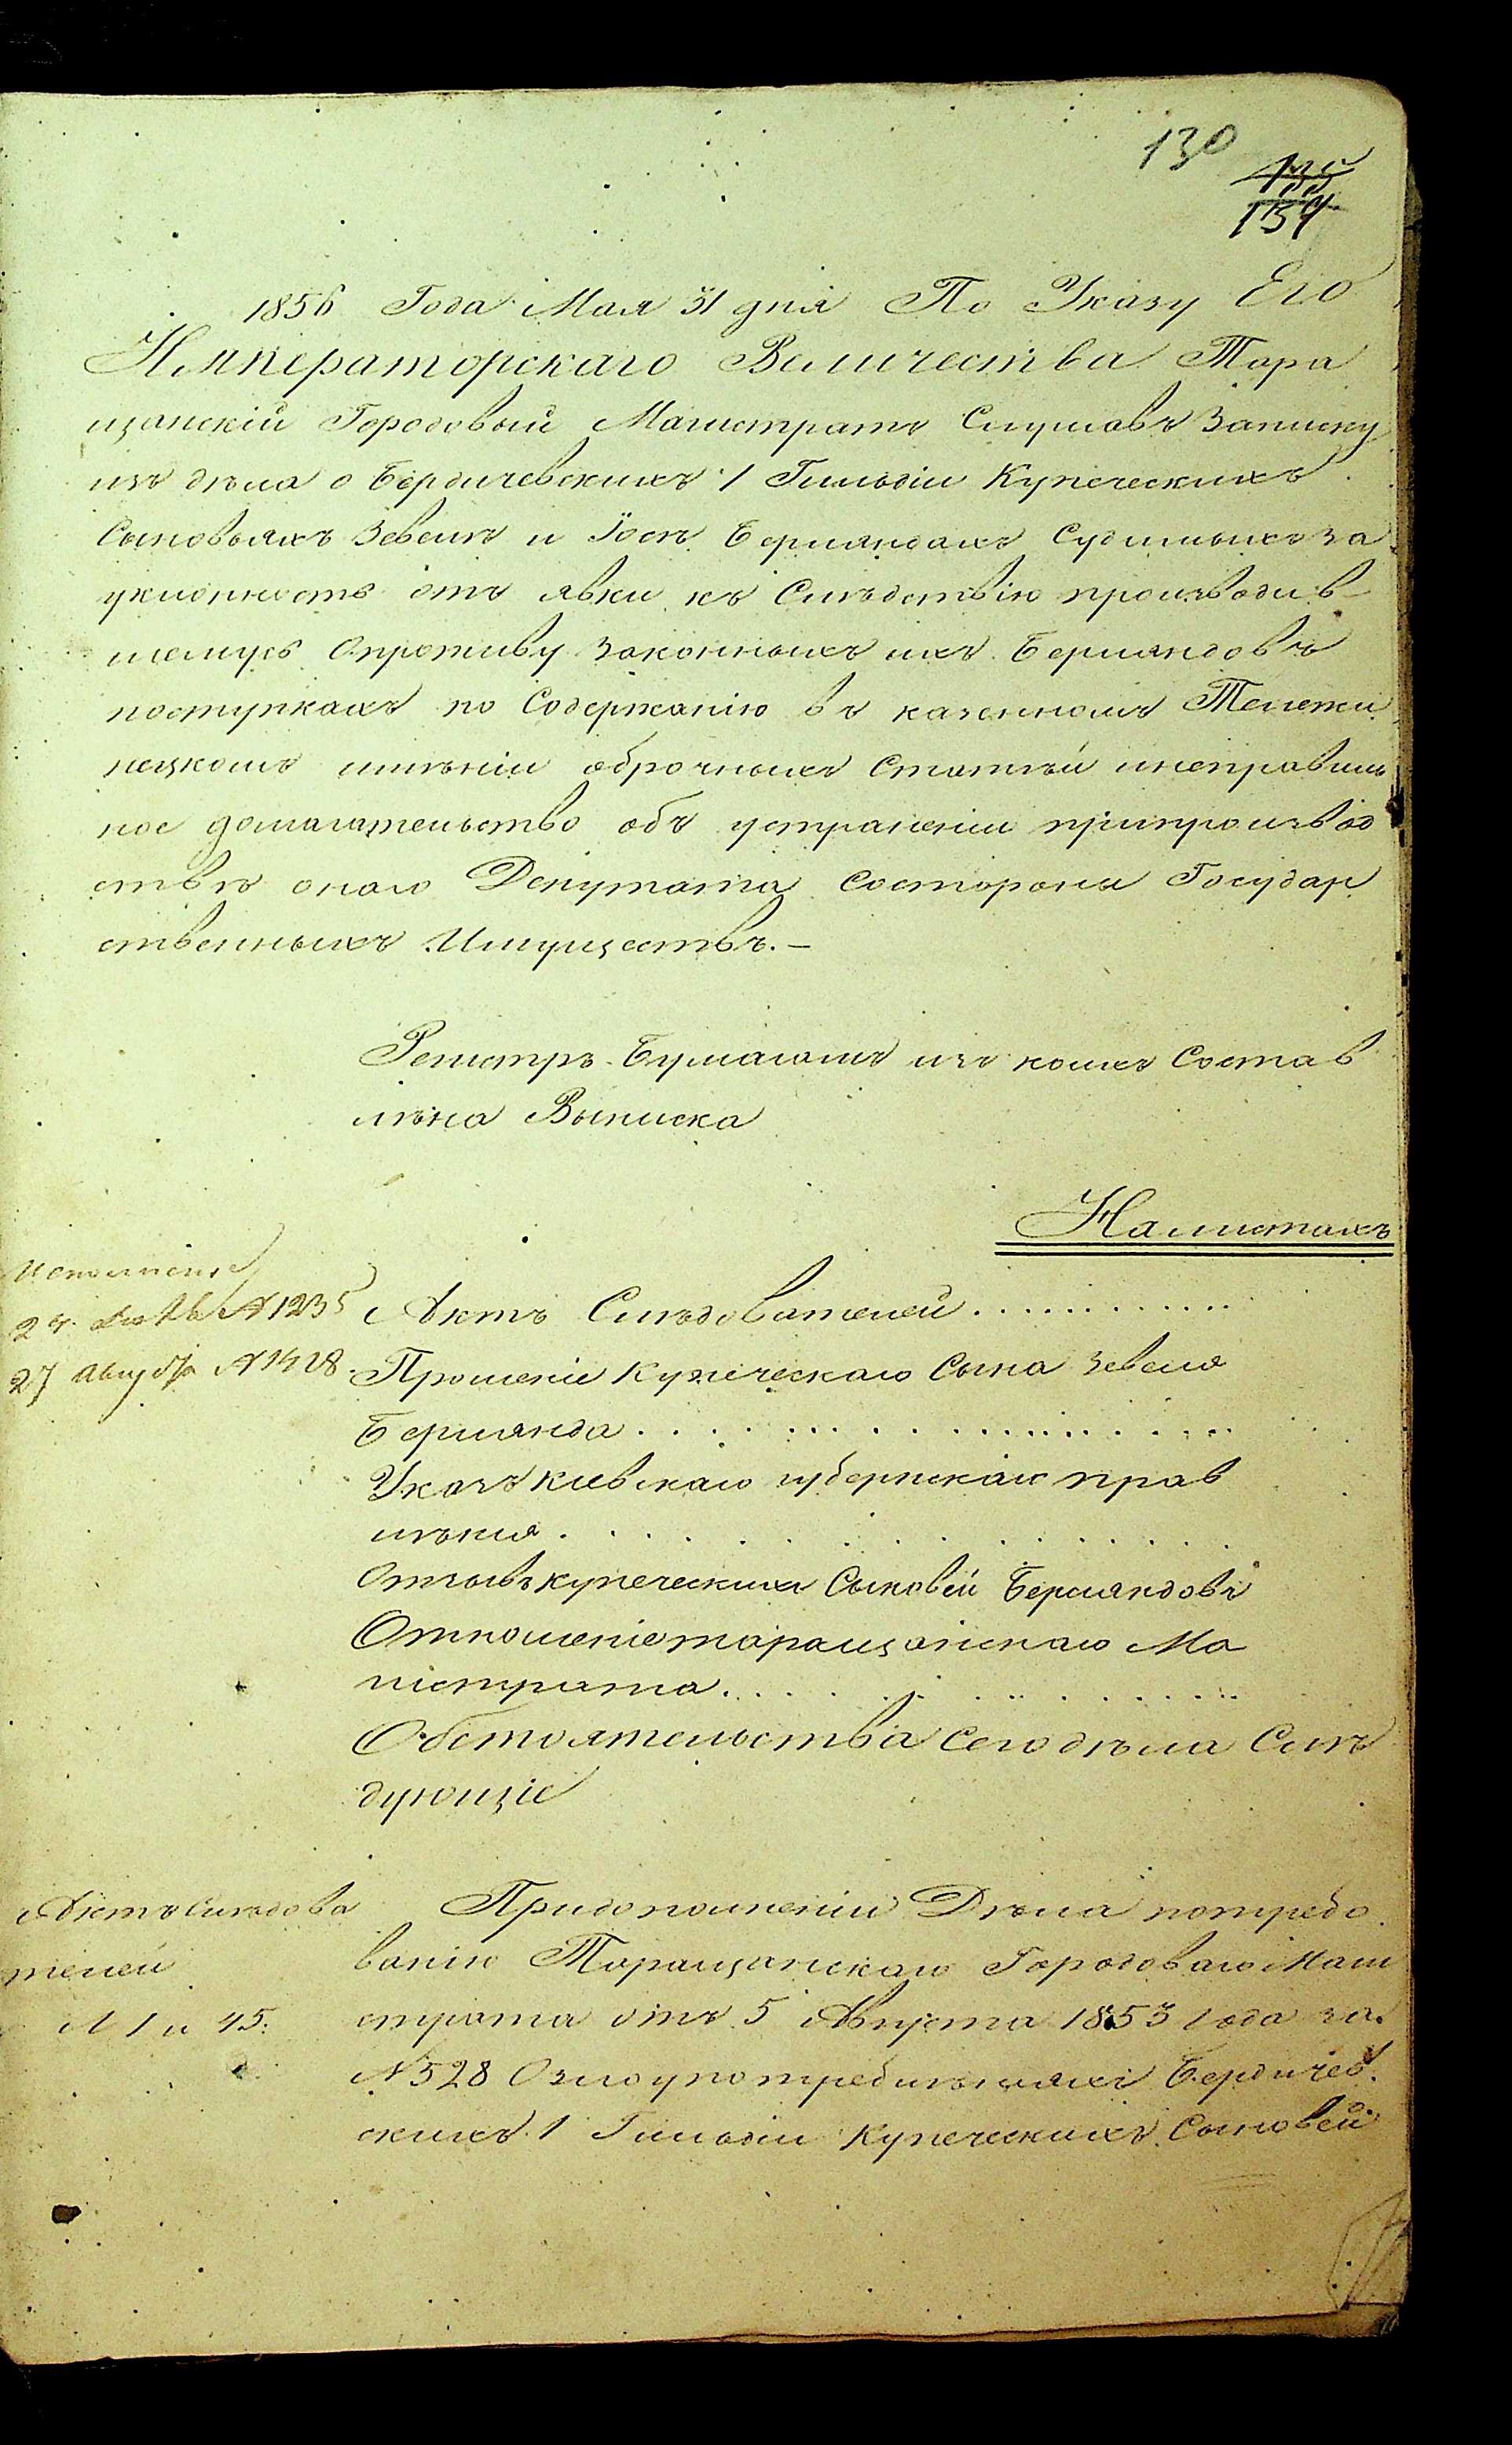 130
135
134
1856 Года Мая 31 дня По Указу Его
Императорскаго Величества Тара
щанскій Городовый Магистратъ Слушавъ Записку
изъ дѣла о Бердичевскихъ 1 Гильдіи Купеческихъ
Сыновьяхъ Зевелѣ и Іосѣ Берляндахъ Судимыхъ за
уклонность отъ явки къ Слѣдствію производив-
шемусь Опротиву Законныхъ ихъ Берляндовъ
поступкахъ по Содержанію въ казенномъ Тележи
нецкомъ имѣніи оброчныхъ Статѣй инеправиль
ное домагательство объ устраненіи припроизвод
ствѣ онаго Депутата Состороны Государ
ственныхъ Имуществъ.-
Регистръ Бумагамъ изъ коихъ Состав
лѣна Выписка
На листахъ
Исполнено
27 Августа № 1428
№ 1235
Актъ Слѣдователей............
Прошеніе Купеческаго Сына Зевеля
Берлянда......................
Указъ Кіевскаго губернскаго прав
лѣнія.................
Отзывъ купеческихъ Сыновей Берляндовъ
Отношеніе таращанскаго Ма
гистрата................
Обстоятельства Сего дѣла Слѣ
дующіе
Актъ Слѣдова
телей
Л 1 и 45:
Придополненіи Дѣла потребо
ванію Таращанскаго Городоваго Маги
страта отъ 5 Августа 1853 года за
№ 528 Озлоупотребленіяхъ Бердичев
скихъ 1 Гильдіи Купеческихъ Сыновей